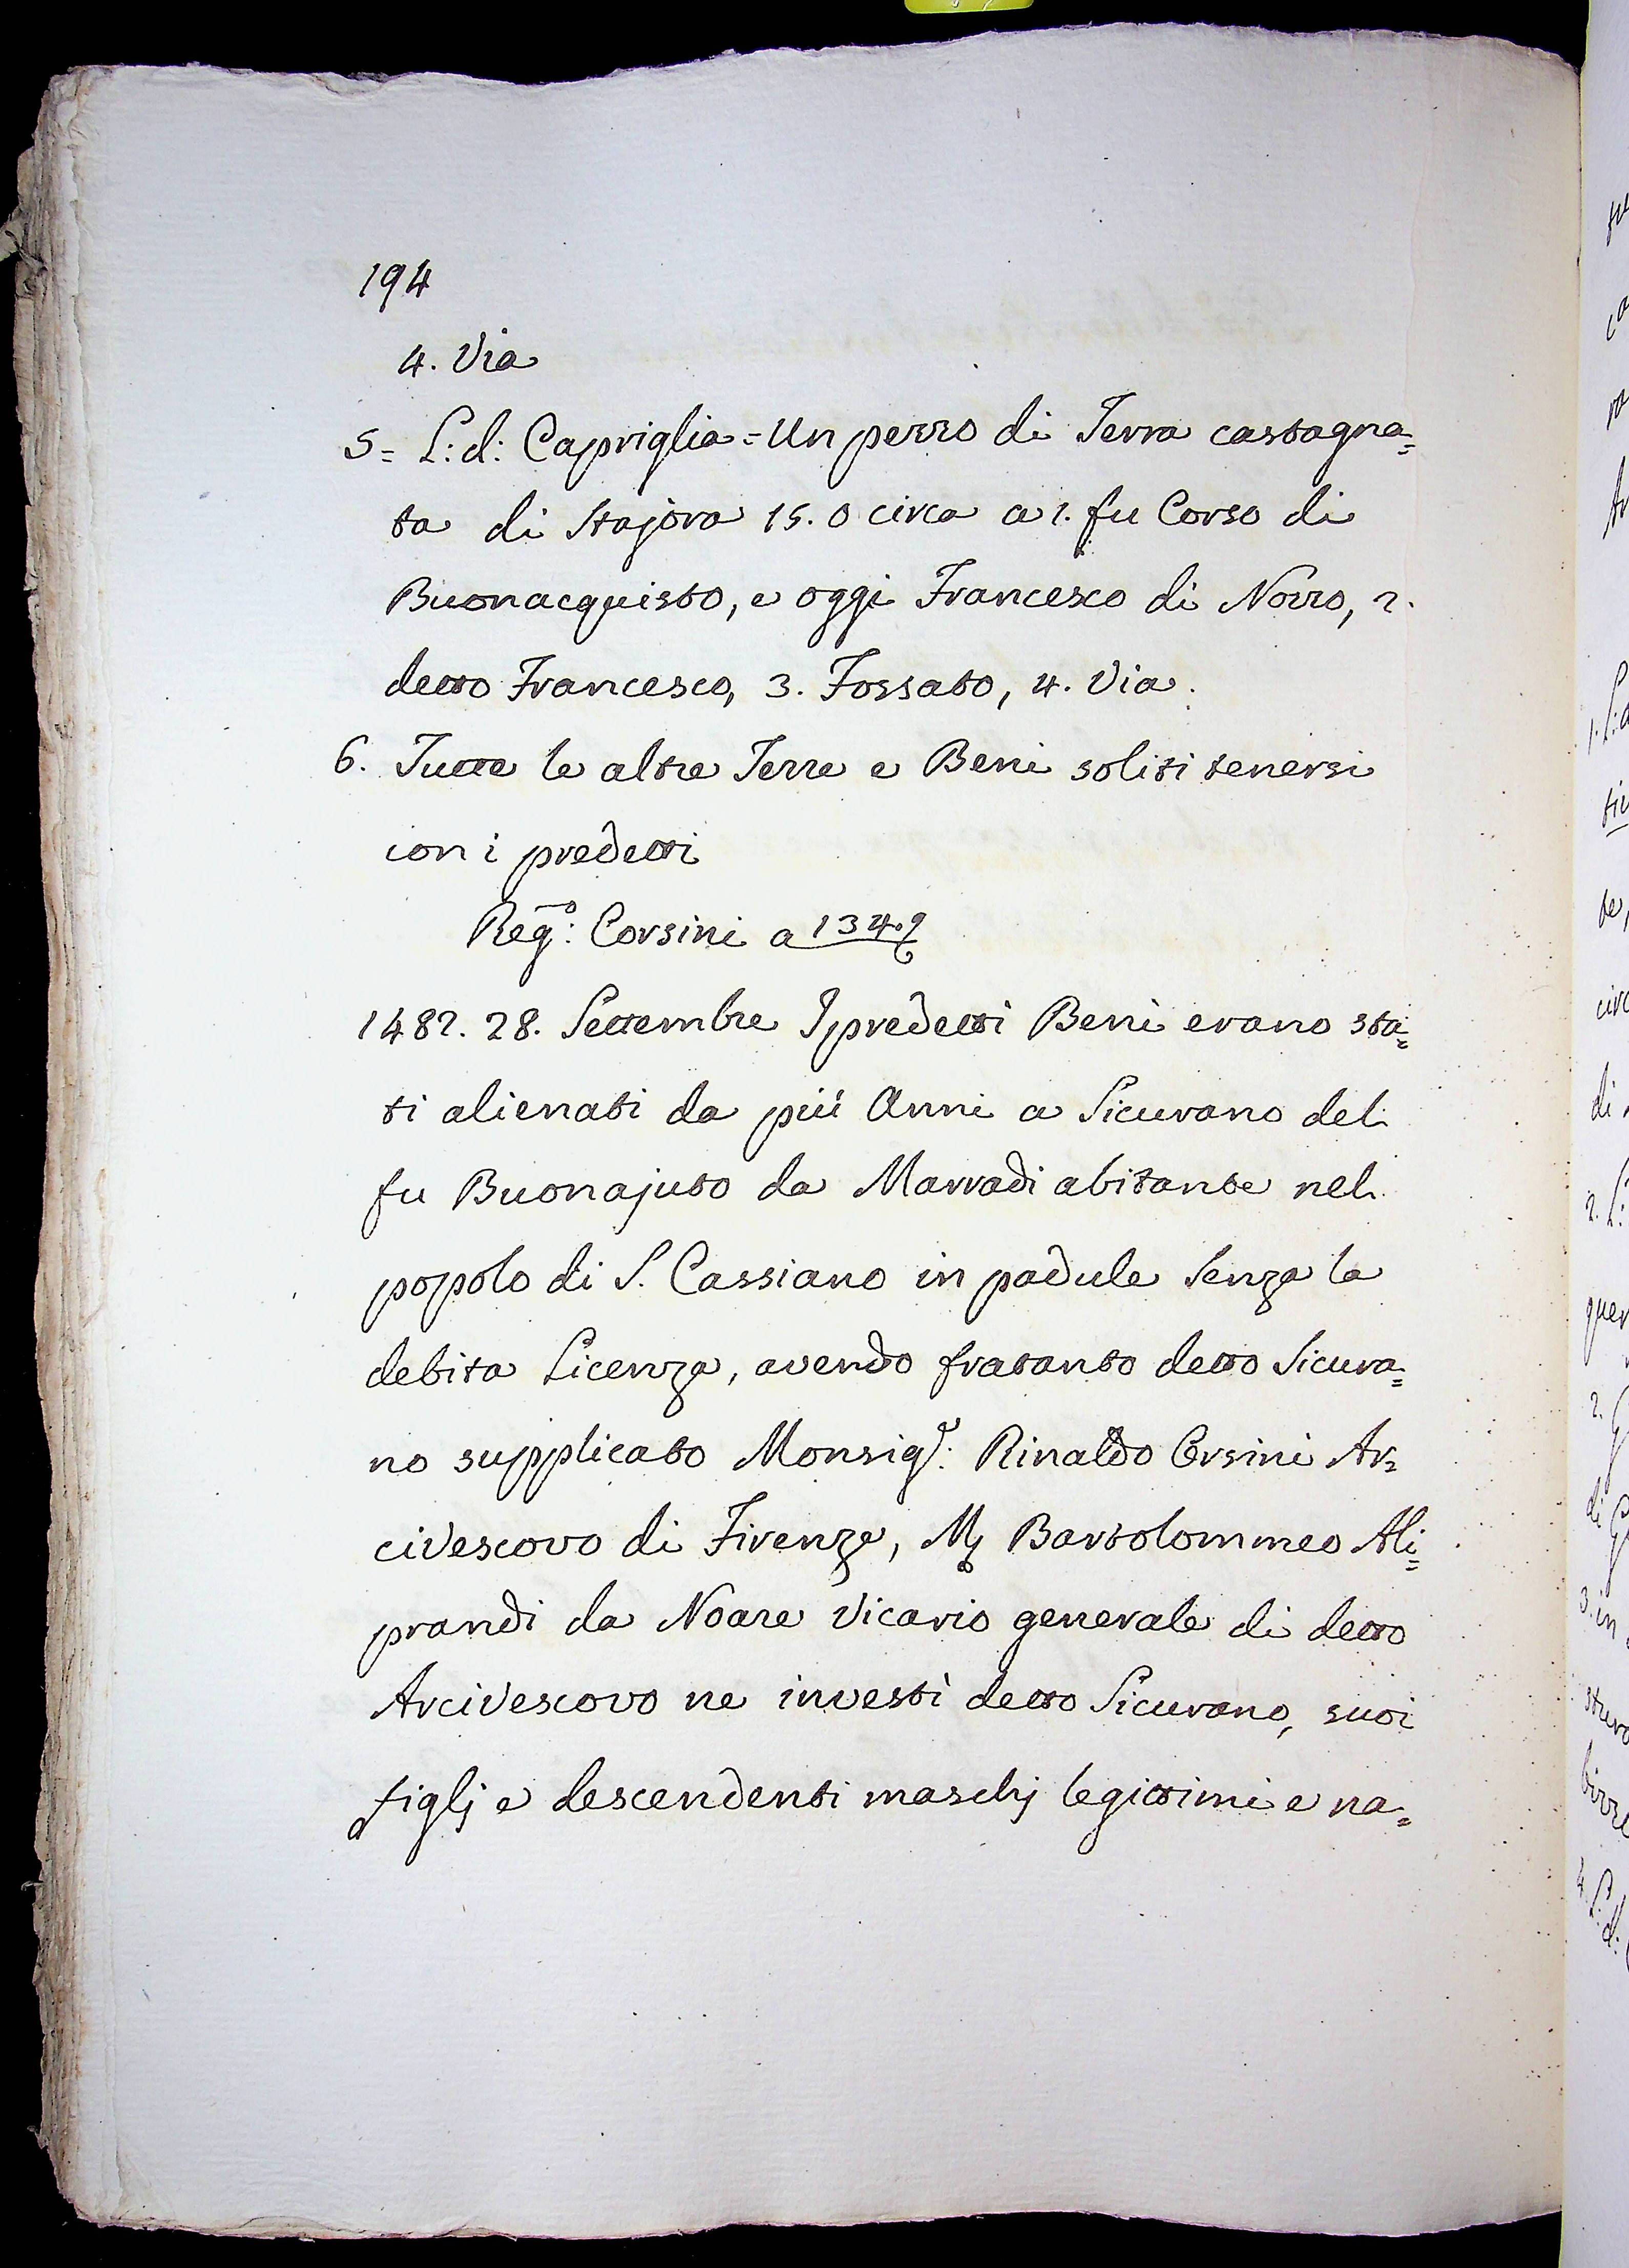 194
4. Via
5= L: d: Capriglia = Un pezzo di Terra castagna=
ta di Stajora 15. 0 circa a 1. fu Corso di
Buonacquisto, e oggi Francesco di Nozzo, 2.
detto Francesco, 3. Fossato, 4. Via.
6. Tutte le altre Terre e Beni soliti tenersi
con i predetti
Reg.o: Corsini a 134. 9
1482. 28. Settembre I predetti Beni erano sta=
ti alienati da più Anni a Sicurano del
fu Buonajuto da Marradi abitante nel
popolo di S. Cassiano in padule senza la
debita Licenza, avendo fratanto detto Sicura=
no supplicato Monsig.r: Rinaldo Orsini Ar=
civescovo di Firenze, M. Bartolommeo Ali=
prandi da Noare Vicario generale di detto
Arcivescovo ne investì detto Sicurano, suoi
figlj e descendenti maschj legittimi e na=